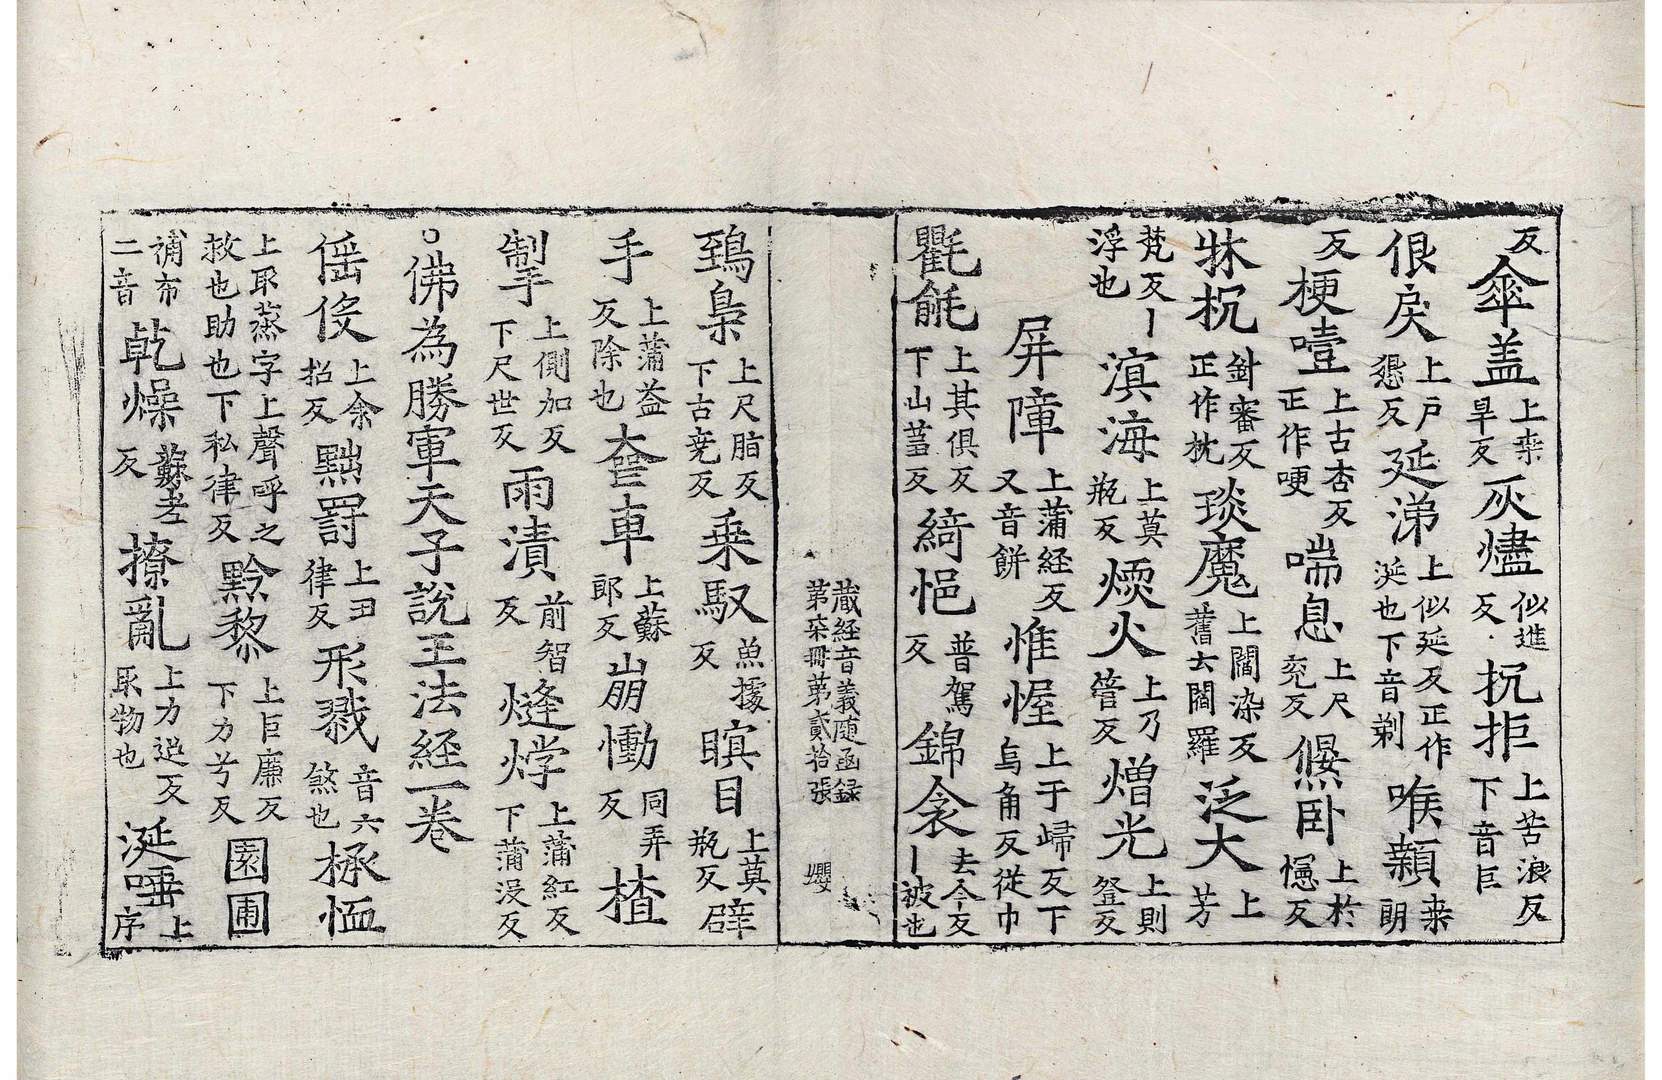 反傘盖上桒旱反灰燼似進反抭拒上苦浪反下音巨
佷戾上戸懇反延涕上似延反正作涎也下音剃喉顙桒朗
反梗噎上古杏反正作哽喘息上尺兖反偃卧上於幰反
牀抭針審反正作枕琰魔上閻染反舊大閻羅泛大上芳
梵反丨浮也溟海上莫瓶反煗火上乃管反熷光上則登反
屏障上蒲経反又音餅惟幄上于歸反下烏角反従巾
氍毹上其俱反下山蒭反綺帊普駕反錦衾去今反丨被也
蔵経音義随函録第柒冊第貳拾張 纓
鵄梟上尺脂反下古尭反乗馭魚據反瞑目上莫瓶反擗
手上蒲益反除也夳車上蘇郎反崩慟同弄反楂
掣手上側加反下尺世反雨漬前智反熢㶿上蒲紅反下蒲沒反
○佛為勝軍天子說王法経一巻
傜伇上余招反黜罰上丑律反形戮音六煞也拯恤
上取蒸字上聲呼之救也助也下私律反黔黎上巨廉反下力兮反園圃
補布二音乾燥蘇老反撩亂上力迢反取物也涎唾上序